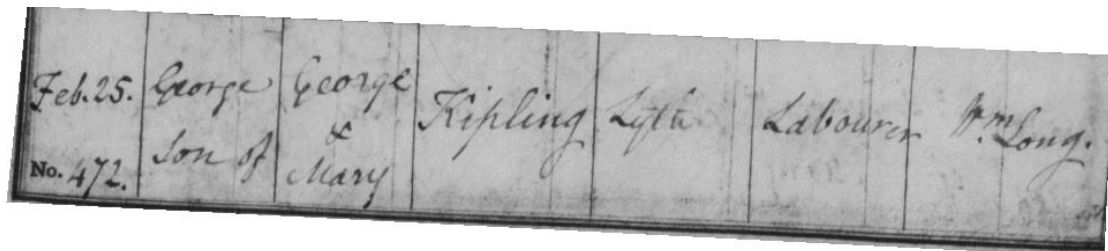 Feb. 25.
No. 472.
George
Son of
George
&
Mary
Kipling
Lyth
Labourer
Wm. Long.